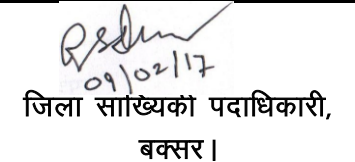 09/02/17
जिला साख्यिकी पदाधिकारी,
बक्सर।